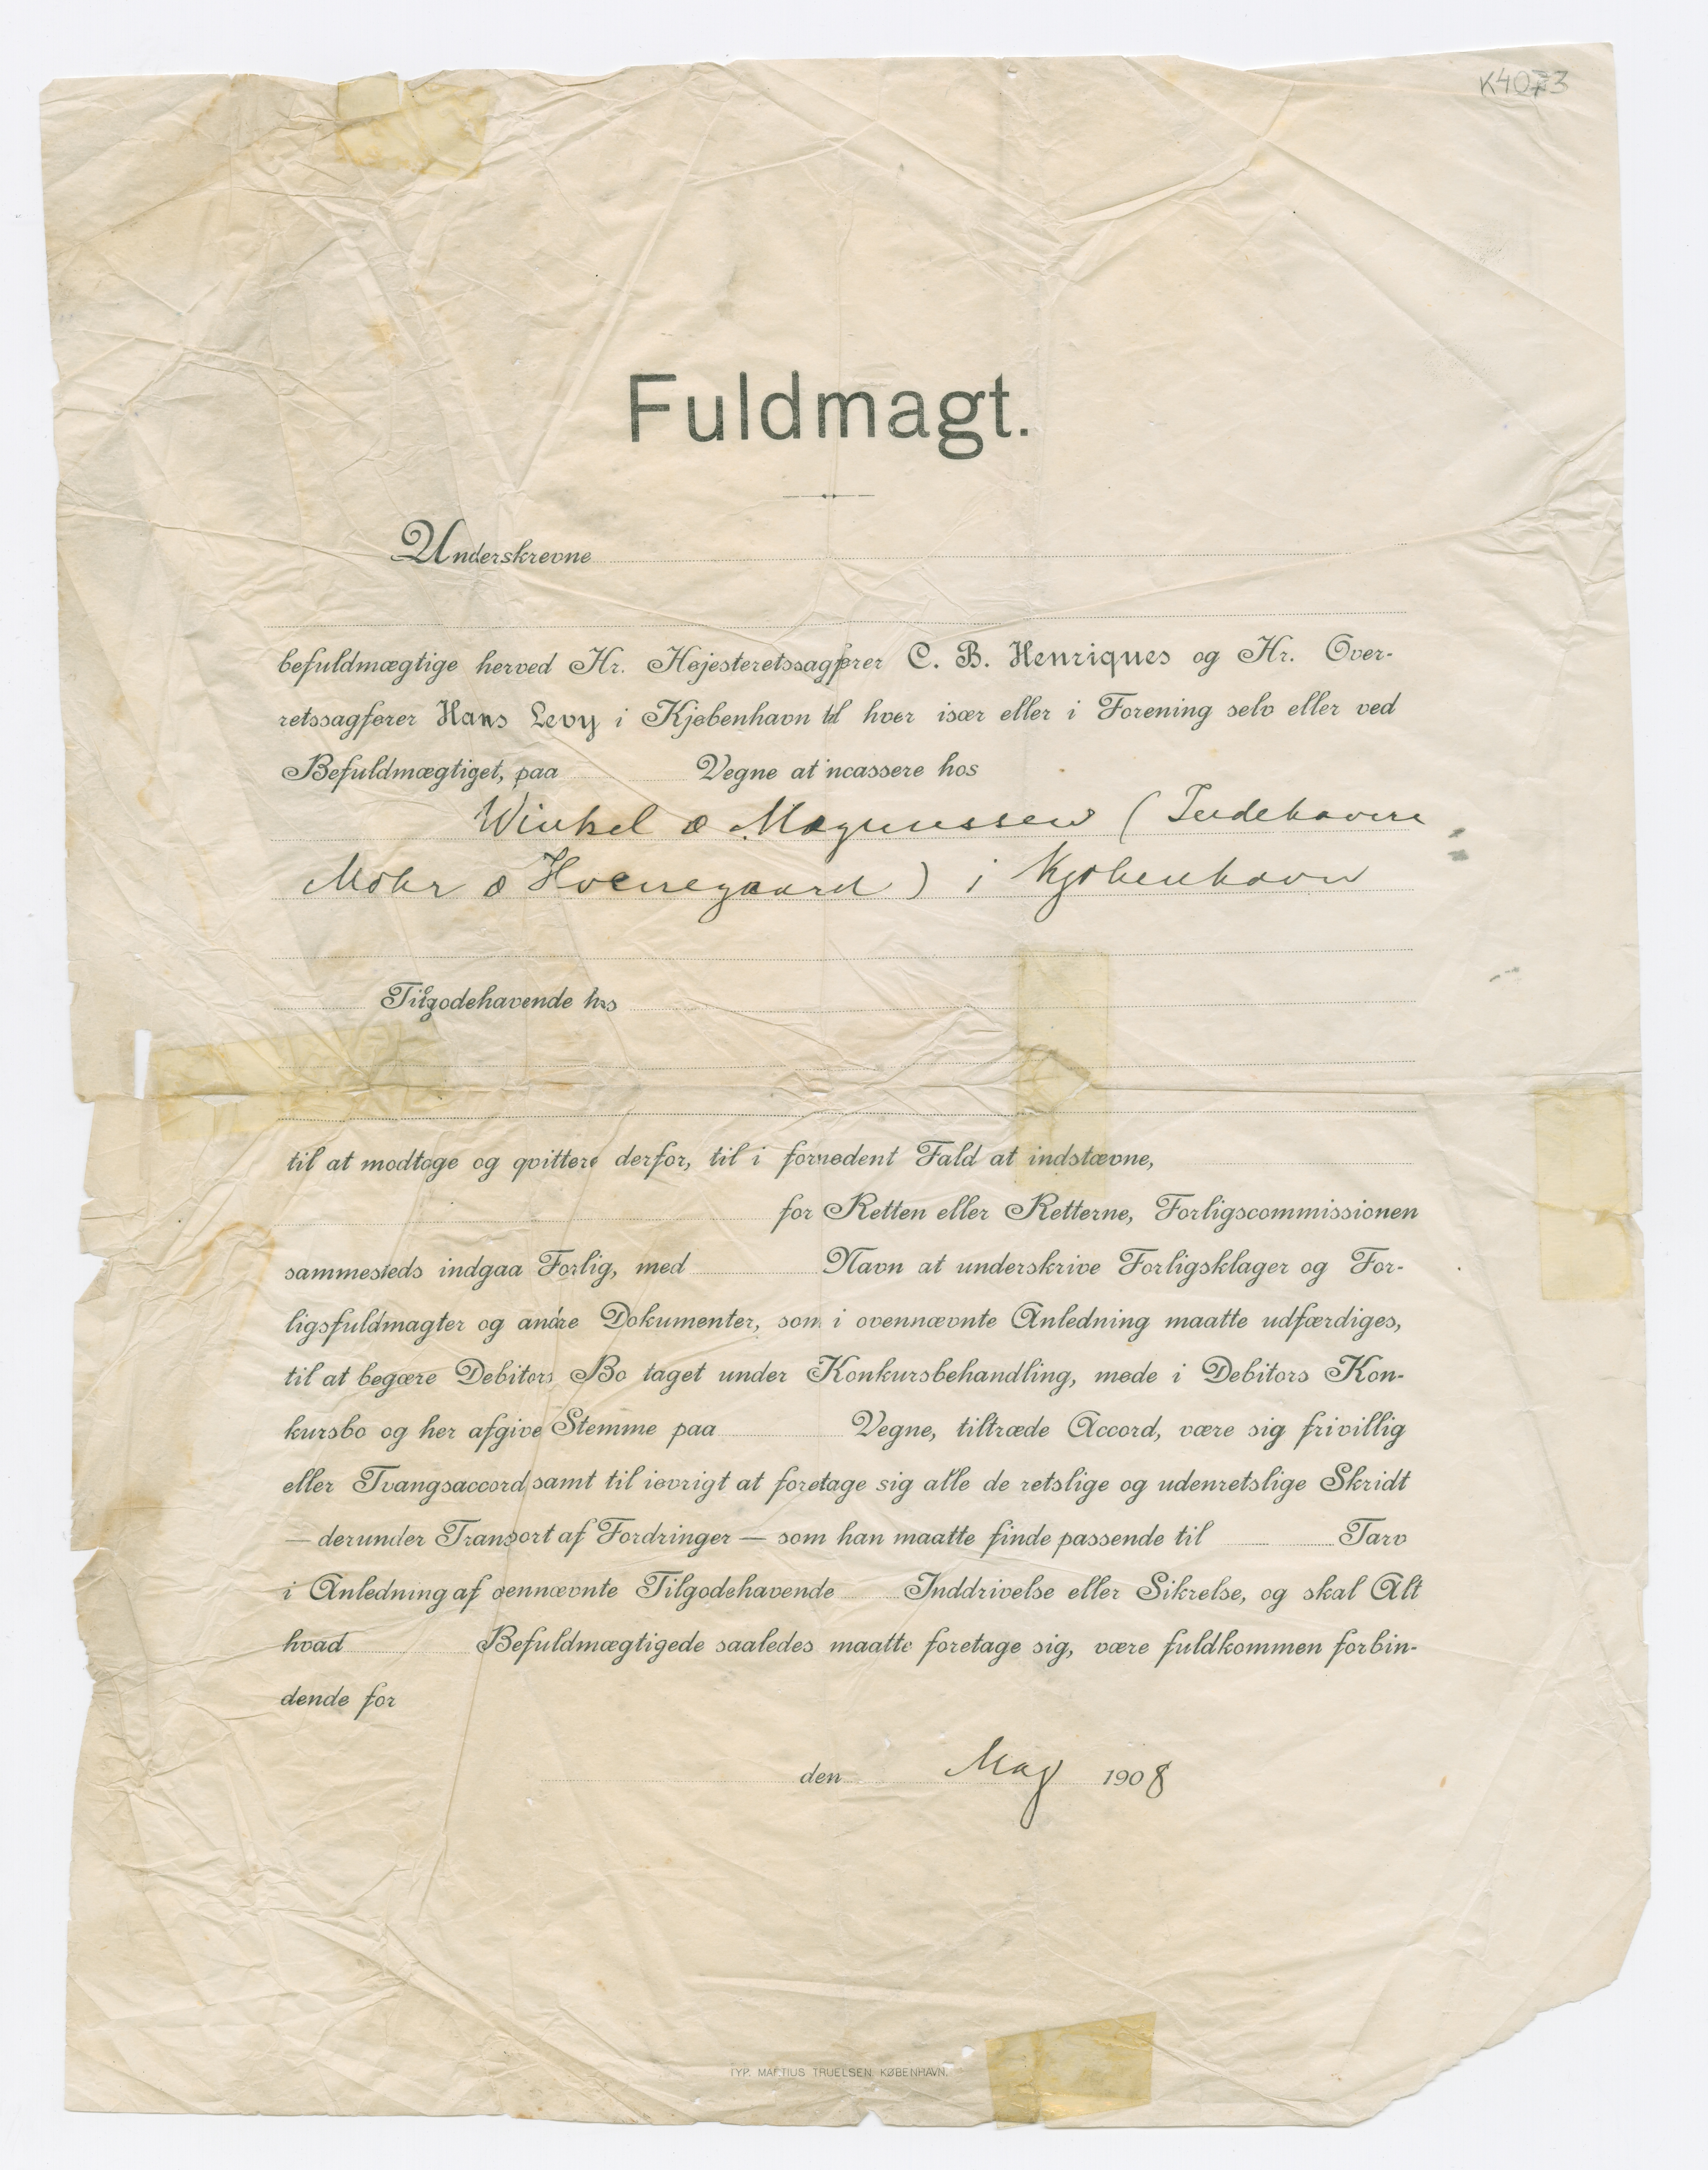 K4073
Fuldmagt.
Underskrevne
befuldmægtige herved Hr. Højesteretssagfører C. B. Henriques og Hr. Over-
retssagfører Hans Levy i Kjøbenhavn til hver især eller i Forening selv eller ved
Befuldmægtiget, paa Vegne at incassere hos
Winkel & Magnussen (Indehavere
Mohr & Hvenegaard) i Kjøbenhavn
Tilgodehavende hos
til at modtage og qvittere derfor, til i fornødent Fald at indstævne,
for Retten eller Retterne, Forligscommissionen
sammesteds indgaa Forlig, med Navn at underskrive Forligsklager og For-
ligsfuldmagter og andre Dokumenter, som i ovennævnte Anledning maatte udfærdiges,
til at begære Debitors Bo taget under Konkursbehandling, møde i Debitors Kon-
kursbo og her afgive Stemme paa Vegne, tiltræde Accord, være sig frivillig
eller Tvangsaccord samt til iøvrigt at foretage sig alle de retslige og udenretslige Skridt
— derunder Transport af Fordringer — som han maatte finde passende til Tarv
i Anledning af ovennævnte Tilgodehavende Inddrivelse eller Sikrelse, og skal Alt
hvad Befuldmægtigede saaledes maatte foretage sig, være fuldkommen forbin-
dende for
den Maj 1908
TYP. MARTIUS TRUELSEN. KØBENHAVN.